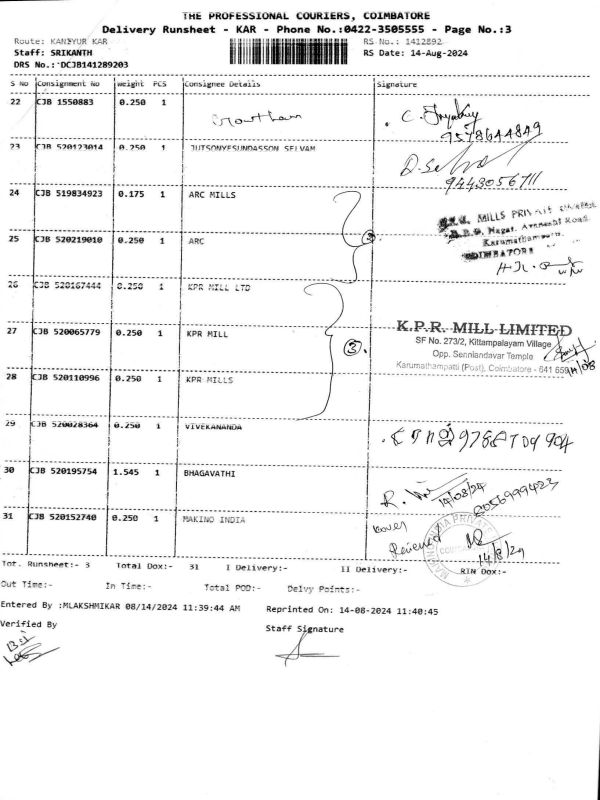 THE PROFESSIONAL COURIERS, COIMBATORE
Delivery Runsheet - KAR - Phone No.:0422-3505555 - Page No.:3
Route: KANIYUR KAR
RS No.: 1412892
Staff: SRIKANTH
RS Date: 14-Aug-2024
DRS No.: DCJB141289203
S No Consignment No weight PCS Consignee Details Signature
22 CJB 1550883 0.250 1 Gowtham
9578644849
23 CJB 520123014 0.250 1 JUTSONYESUNDASSON SELVAM
9443056711
24 CJB 519834923 0.175 1 ARC MILLS
MILLS
Nagar, Avanashi Road
25 CJB 520219010 0.250 1 ARC
COIMBATORE
26 CJB 520167444 0.250 1 KPR MILL LTD
27 CJB 520065779 0.250 1 KPR MILL
3.
K.P.R. MILL LIMITED
SF No. 273/2, Kittampalayam Village
Opp. Senniandavar Temple
Karumathampatti (Post), Coimbatore - 641 659
28 CJB 520110996 0.250 1 KPR MILLS
29 CJB 520028364 0.250 1 VIVEKANANDA
30 CJB 520195754 1.545 1 BHAGAVATHI
14/08/24
31 CJB 520152740 0.250 1 MAKINO INDIA
Cover
Received
14/8/24
Tot. Runsheet:- 3 Total Dox:- 31 I Delivery:- II Delivery:- RTN Dox:-
Out Time:- In Time:- Total POD:- Delvy Points:-
Entered By :MLAKSHMIKAR 08/14/2024 11:39:44 AM Reprinted On: 14-08-2024 11:40:45
Verified By
Staff Signature